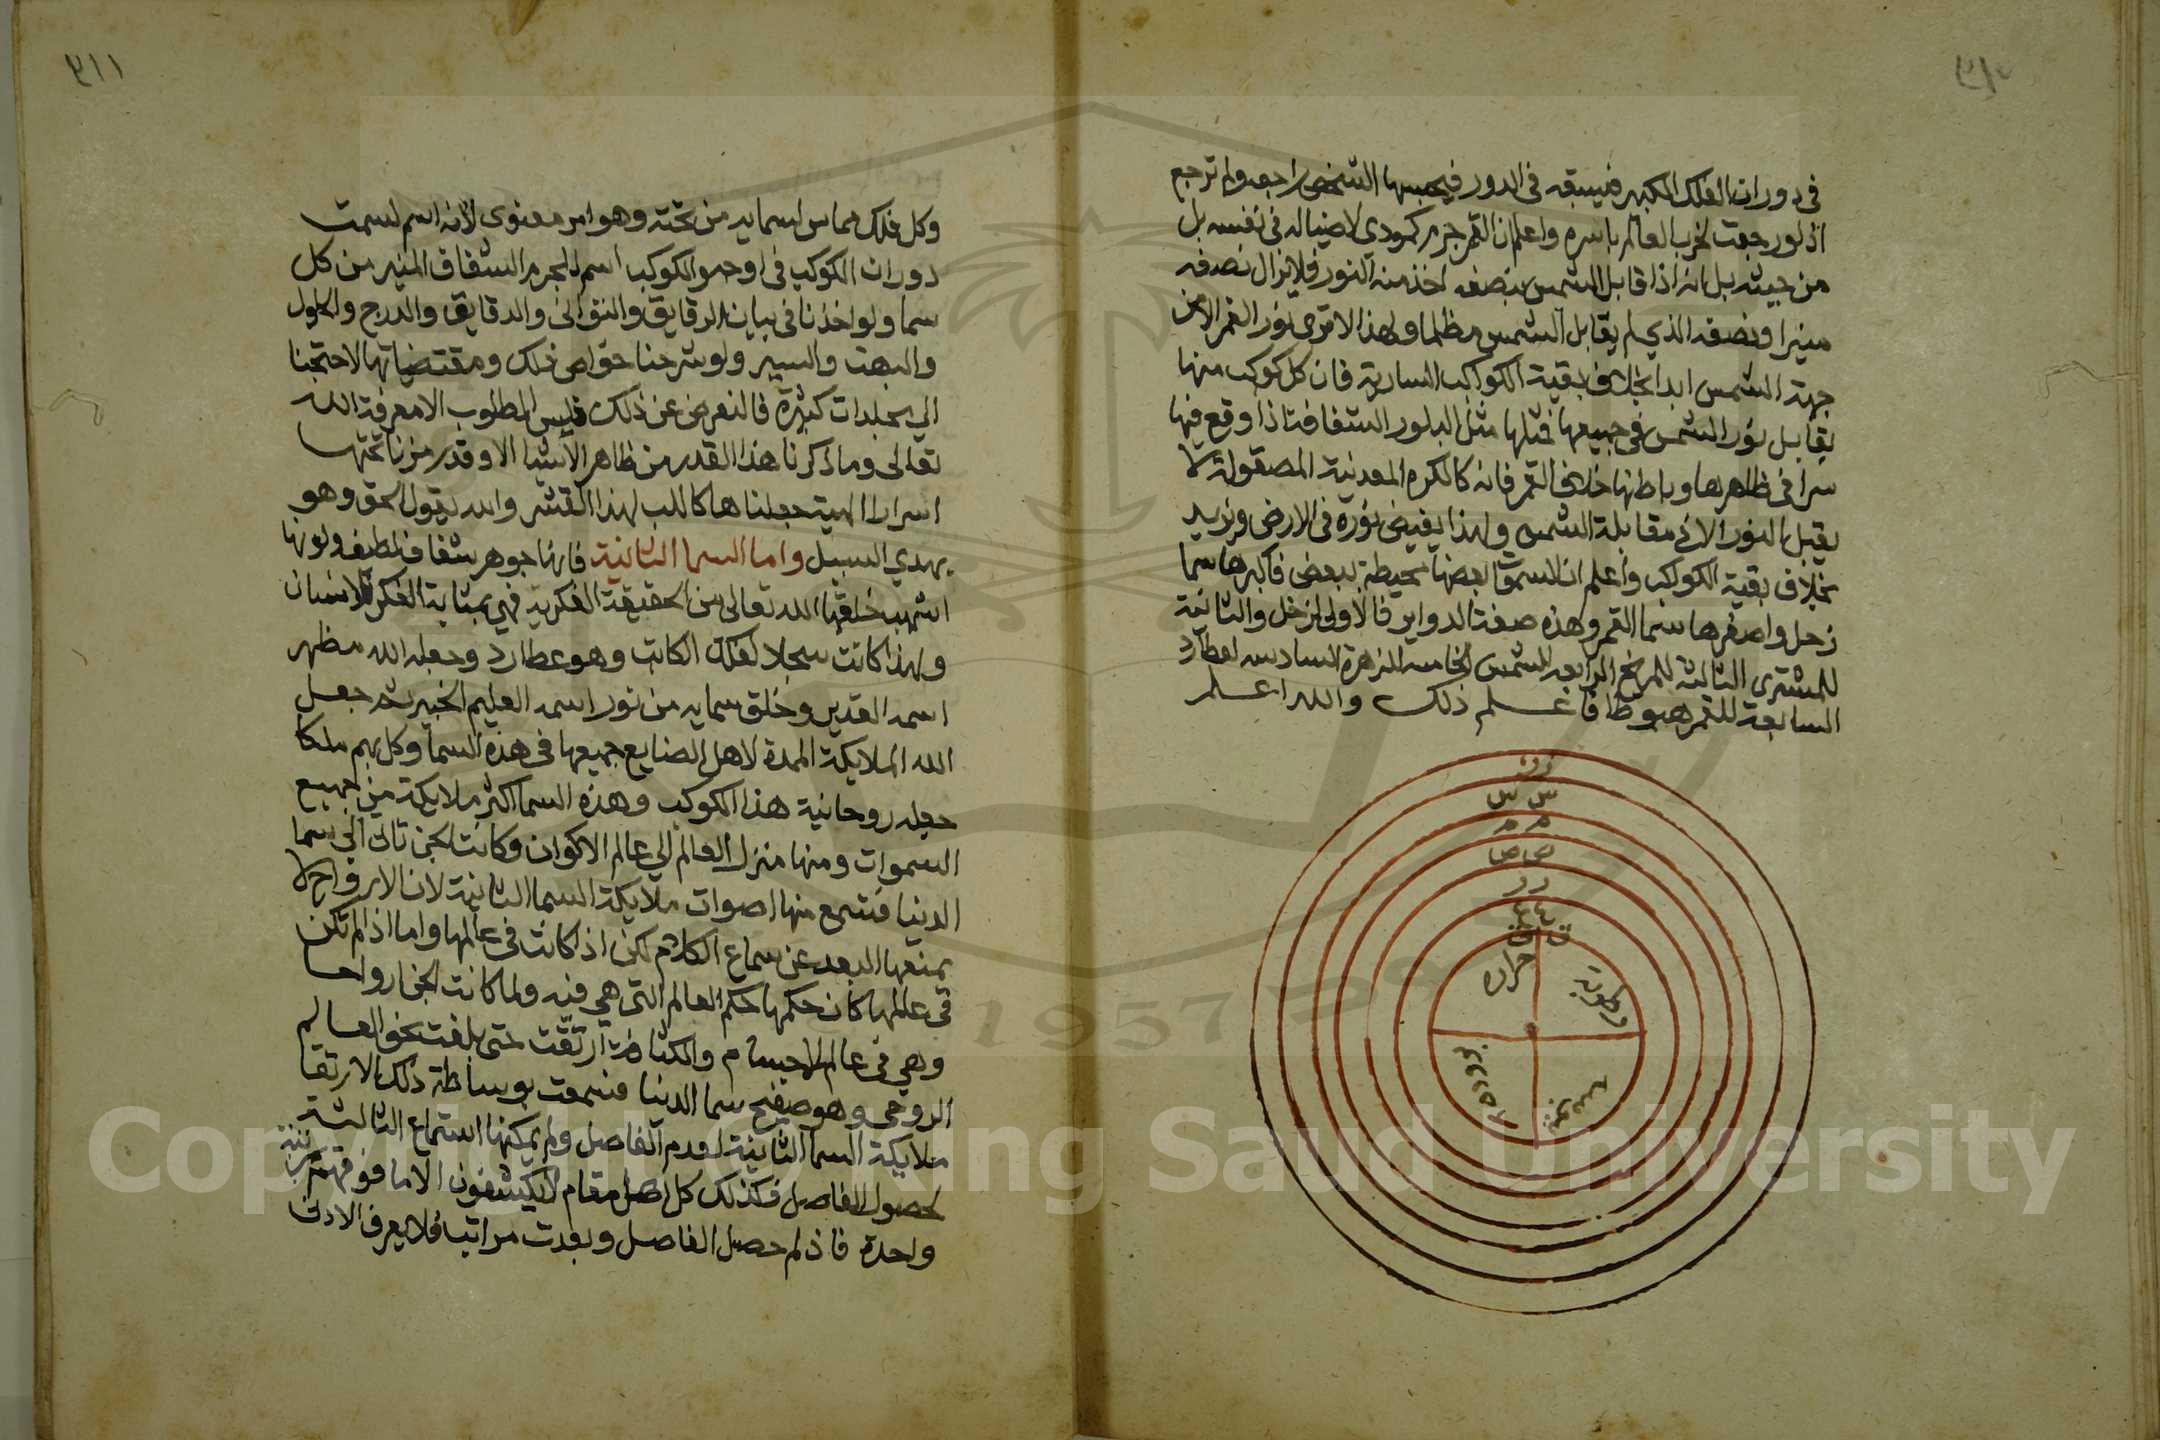 في دوران الفلك الكبير فيسبقه في الدور فيحسبها الشخص راجعه ولم ترجع
اذ لو رجعت لخرب العالم باسره واعلم ان القمر جرم كمودي لا ضيا له في نفسه بل
من حيثه بل انه اذا قابل الشمس بنصفه اخذ منه النور فلا يزال نصفه
منيرا ونصفه الذي لم يقابل الشمس مظلما ولهذا لا ترى نور القمر الا من
جهة الشمس ابدا بخلاف بقية الكواكب السارية فان كل كوكب منها
يقابل نور الشمس في جميعها فمثلها مثل البلور الشفافة اذا وقع فيها
سرا في ظاهرها وباطنها بخلاف القمر فانه كالكره المعدنية المصقولة لا
يقبل النور الا في مقابلة الشمس ولهذا يفيض نوره في الارض ويزيد
بخلاف بقية الكواكب واعلم ان السموات بعضها محيطة ببعض فاكبرها سما
زحل واصغرها سما القمر وهذه صفة الدواير فالاولى لزحل والثانية
للمشتري الثالثة للمريخ الرابعه للشمس الخامسه للزهرة السادسه لعطارد
السابعة للقمر هبوطا فاعلم ذلك والله اعلم
س س
ص ص
حراره
رطوبة
بروده
يبوسه
٣١١
وكل فلك مماس لسمايه من تحته وهو امر معنوى لانه اسم لسمت
دوران الكوكب في اوجه والكوكب اسم للجرم الشفاف المنير من كل
سما ولو اخذنا في بيان الرقايق والثوانى والدقايق والدرج والحلول
والبهت والسير ولو شرحنا خواص ذلك ومقتضياتها لاحتجنا
الي مجلدات كثيرة فالنعرض عن ذلك فليس المطلوب الا معرفة الله
تعالى وما ذكرنا هذا القدر من ظاهر الاشيا الا وقد رمزنا تحتها
اسرارا الهية جعلناها كاللب لهذا القشر والله يقول الحق وهو
يهدي السبيل واما السما الثانية فانها جوهر شفاف لطيف ولونها
اشهب خلقها الله تعالى من الحقيقة الفكرية فهي بمثابة الفكر للانسان
ولهذا كانت سجلا لفلك الكاتب وهو عطارد وجعله الله مظهر
اسمه القدير وخلق سمايه من نور اسمه العليم الخبير ثم جعل
الله الملايكة الممدة لاهل الصنايع جميعها في هذه السما وكل بهم ملكا
جعله روحانية هذا الكوكب وهذه السما اكثر ملايكة من جميع
السموات ومنها منزل العالم الي عالم الاكوان وكانت الجن تاتى الى سما
الدنيا فتسمع منها اصوات ملايكة السما الثانية لان الارواح لا
يمنعها البعد عن سماع الكلام لكن اذ كانت في عالمها واما اذا لم تكن
في عالمها كان حكمها حكم العالم التى هي فيه ولما كانت الجن ارواحا
وهي في عالم الاجسام والكثافة ارتقت حتى بلغت نحو العالم
الروحى وهو صفيح سما الدنيا فسمعت بوساطة ذلك الارتقا
ملايكة السما الثانية لعدم الفاصل ولم يمكنها استماع الثالثة
لحصول الفاصل فكذلك كل اهل مقام لا يكشفون الا ما فوقهم بمرتبة
واحدة فاذا لم حصل الفاصل وبعدت مراتبا فلا يعرف الادنى
Copyright © King Saud University
1957